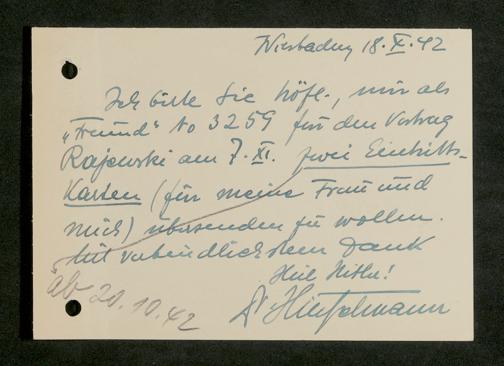 Wiesbaden, 18. X. 42
Ich bitte Sie höfl., mir als
„Freund“ No 3259 für den Vortrag
Rajewski am 7. XI. zwei Eintritts-
Karten (für meine Frau und
mich) übersenden zu wollen.
Mit verbindlichstem Dank
Heil Hitler!
Dr
ab 20.10.42